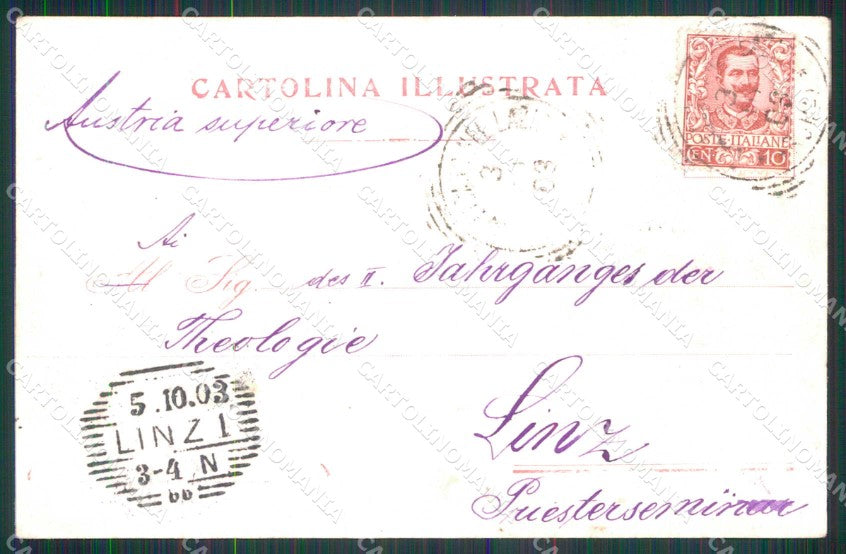 CARTOLINA ILLUSTRATA
Austria superiore
POSTE ITALIANE
CEN 10
3
03
Ai
Al Sig. des II. Jahrganges der
Theologie
5.10.03
LINZ 1
3-4 N
bb
Linz
Priesterseminar
CARTOLINOMANIA